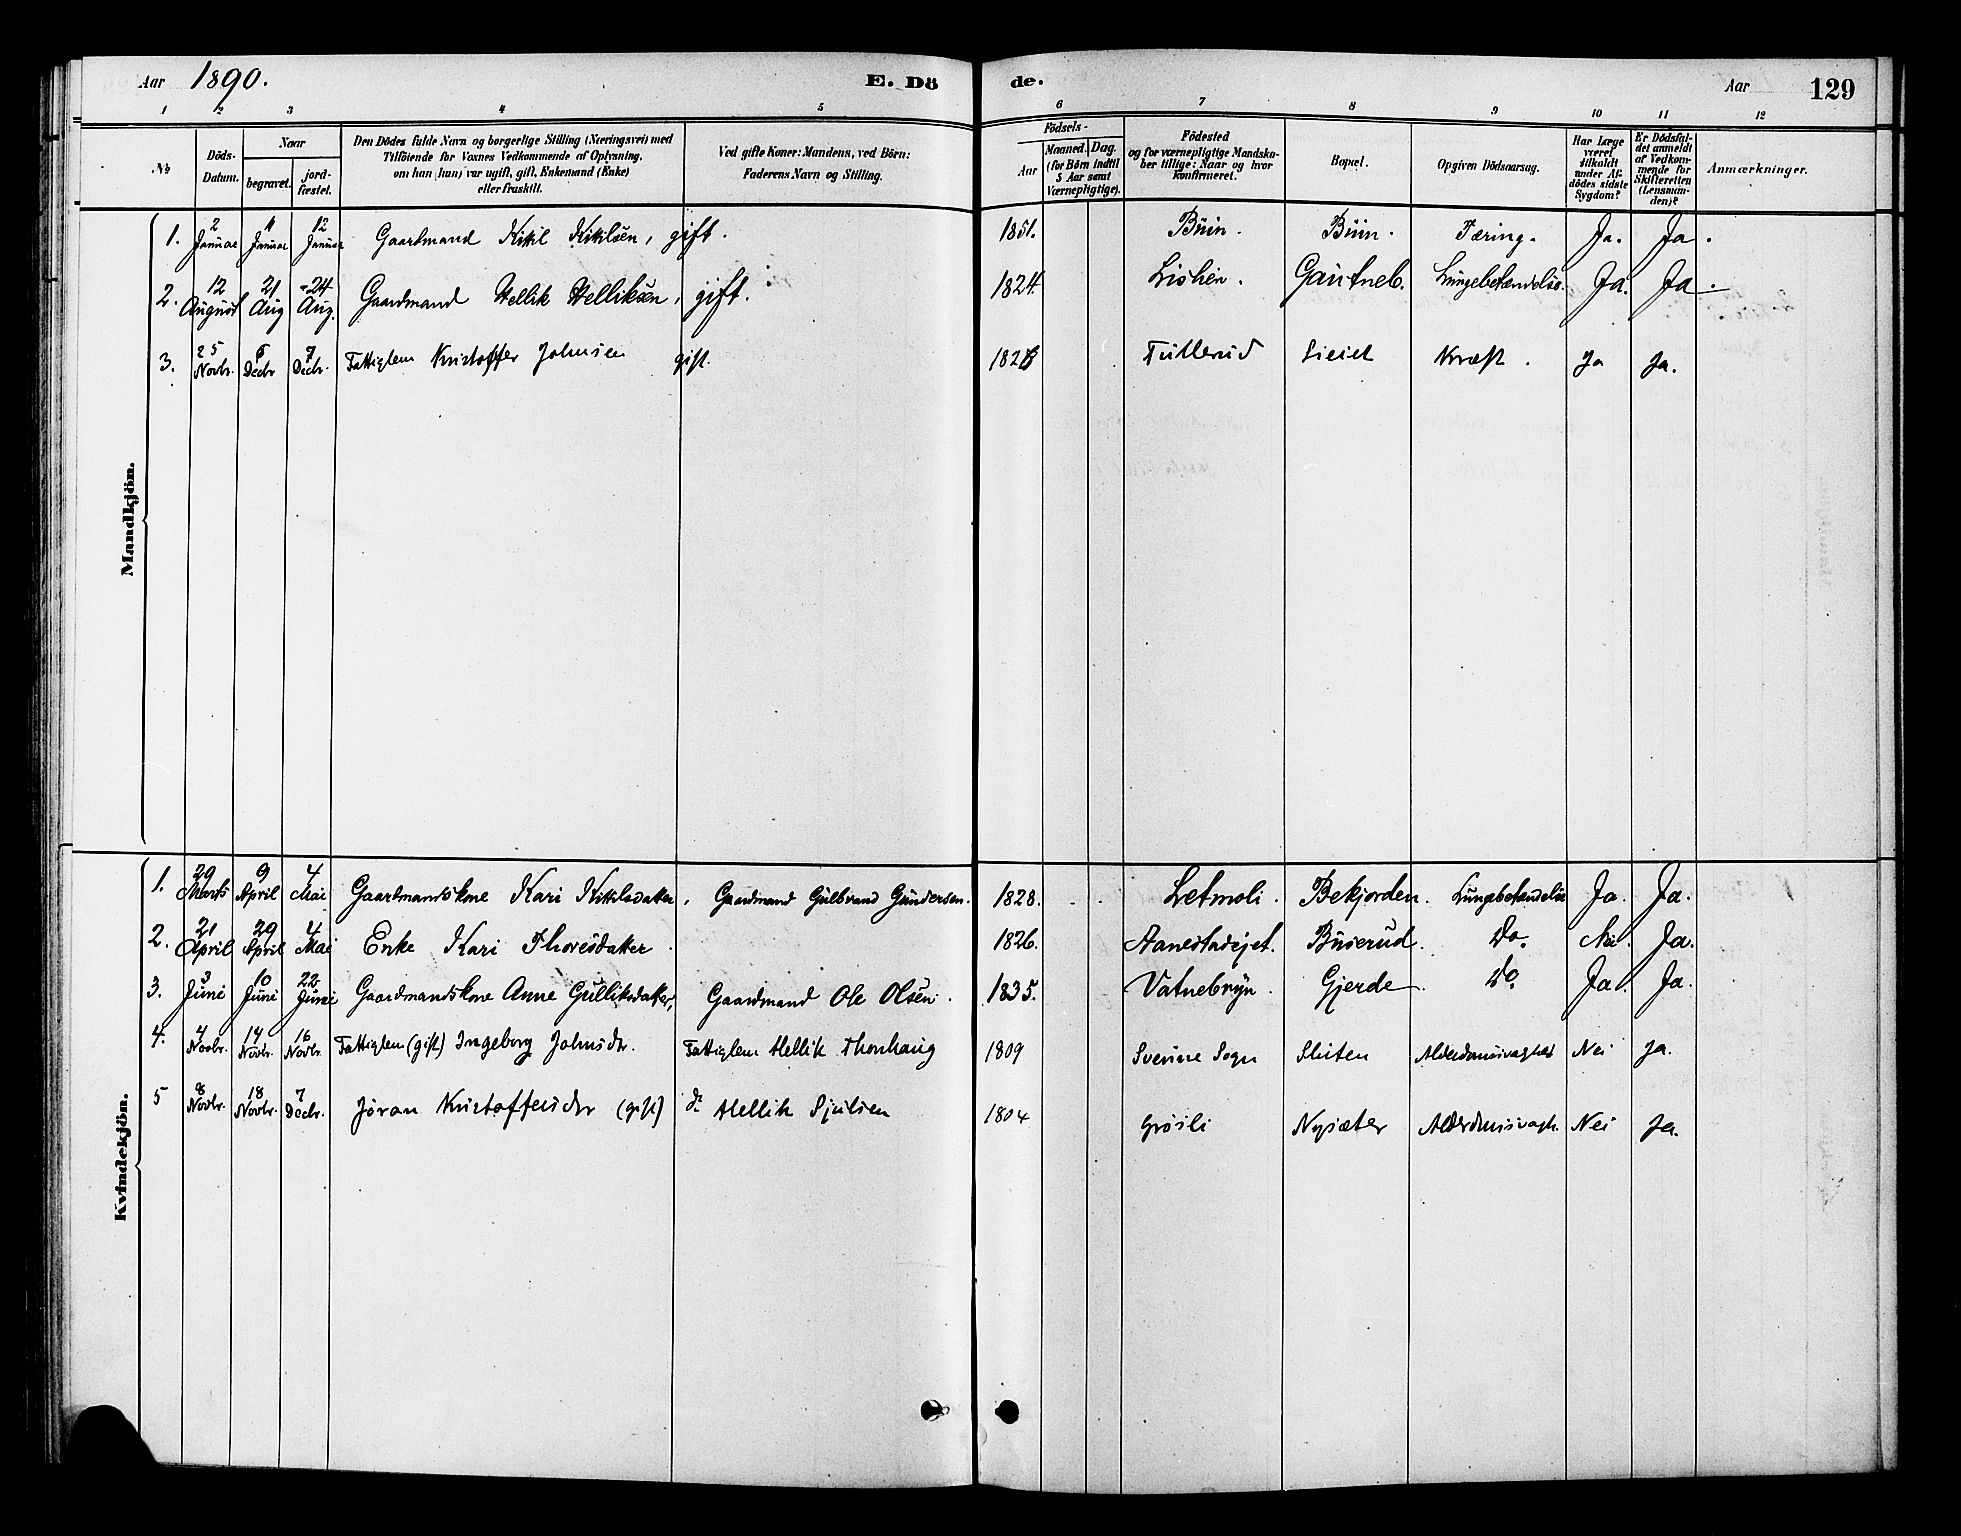 Aar 1890. E. Dö de. Aar 129
1 2 3 4 5 6 7 8 9 10 11 12
No
Döds-Datum.
Naar
begravet.
jord-fæstet.
Den Dödes fulde Navn og borgerlige Stilling (Næringsvei) med
Tilföiende for Voxnes Vedkommende af Oplysning,
om han (hun) var ugift, gift, Enkemand (Enke)
eller fraskilt.
Ved gifte Koner: Mandens, ved Börn:
Faderens Navn og Stilling.
Födsels-
Aar
Maaned. Dag.
(for Börn indtil
5 Aar samt
Værnepligtige).
Födested
og for værnepligtige Mandska-
ber tillige: Naar og hvor
Konfirmeret.
Bopæl.
Opgiven Dödsaarsag.
Har Læge
været
tilkaldt
under Af-
dödes sidste
Sygdom?
Er Dödsfal-
det anmeldt
af Vedkom-
mende for
Skifteretten
(Lensman-
den)?
Anmærkninger.
Mandkjön.
1. 2 Januar 11 Januar 12 Januar Gaardmand Kittil Kittilsen, gift. 1851. Büin. Büin. Tæring. Ja. Ja.
2. 12 August 21 Aug 24 Aug. Gaardmand Hellik Helliksen, gift. 1824. Lishein. Gaütneb. Lungebetændelse. Ja. Ja.
3. 25 Novbr. 6 Decbr 7 Decbr. Fattiglem Kristoffer Johnsen gift. 1823 Tullerud Kræft. Ja Ja.
Kvindekjön.
1. 29 Marts 9 April 4 Mai Gaardmandskone Kari Kittilsdatter, Gaardmand Gülbrand Gündersen. 1828. Letmoli. Bekjorden. Lungebetændelse Ja. Ja.
2. 21 April 29 April 4 Mai Enke Kari Thoresdatter. 1826. Aanestadejet. Büserud. Do. Nei. Ja.
3. 3 Jüni 10 Jüni 22 Jüni Gaardmandskone Anne Gülliksdatter, Gaardmand Ole Olsen. 1835. Vatnebryn. Gjerde. Do. Ja. Ja.
4. 4 Novbr. 14 Novbr. 16 Novbr. Fattiglem (gift) Ingeborg Johnsdr. Fattiglem Hellik Thonhaug 1809 Svenne Sogn Sluten Alderdomssvaghed Nei Ja.
5 8 Novbr. 18 Novbr. 7 Decbr. Jøran Kristoffersdr (gift) do Hellik Sjulsen 1804 Grøsli Nysæter Alderdomssvagh. Nei Ja.